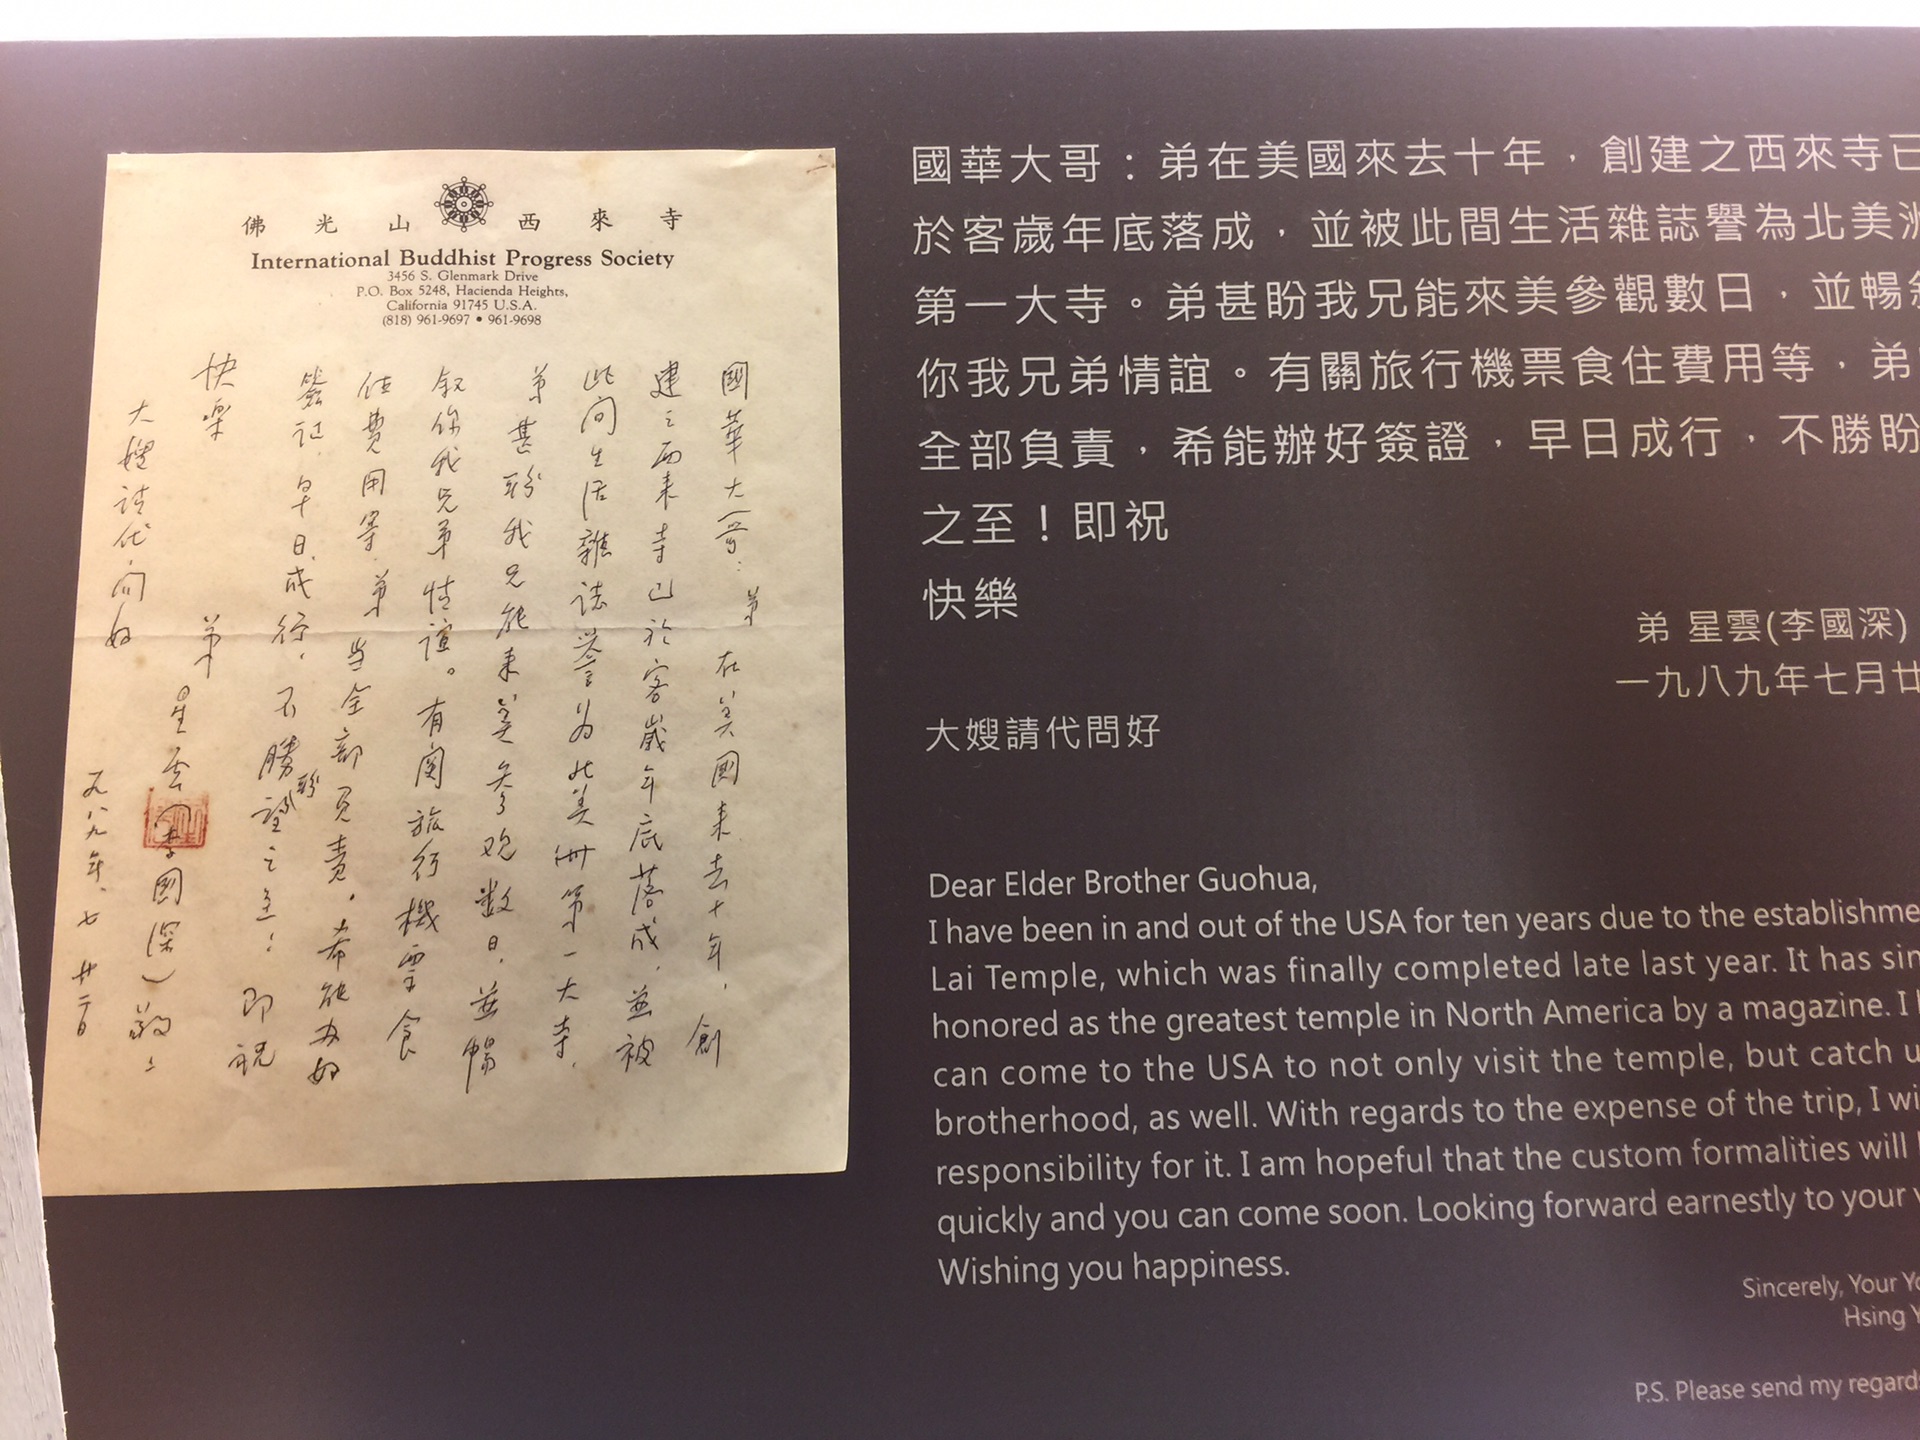 佛光山西來寺
International Buddhist Progress Society
3456 S. Glenmark Drive
P.O. Box 5248, Hacienda Heights,
California 91745 U.S.A.
(818) 961-9697 • 961-9698
國華大哥：弟在美國來去十年，創
建之西來寺已於客歲年底落成，並被
此间生活雜誌誉为北美洲第一大寺。
弟甚盼我兄能來美参观数日，並暢
叙你我兄弟情誼。有関旅行機票食
住費用等，弟当全部負責。希能办好
簽证，早日成行，不勝盼望之至！即祝
快楽
弟 星云(李國深)敬上
大嫂請代问好
一九八九年、七、廿二日
國華大哥：弟在美國來去十年，創建之西來寺已
於客歲年底落成，並被此間生活雜誌譽為北美洲
第一大寺。弟甚盼我兄能來美參觀數日，並暢敘
你我兄弟情誼。有關旅行機票食住費用等，弟
全部負責，希能辦好簽證，早日成行，不勝盼
之至！即祝
快樂
弟 星雲(李國深)
一九八九年七月廿
大嫂請代問好
Dear Elder Brother Guohua,
I have been in and out of the USA for ten years due to the establishme
Lai Temple, which was finally completed late last year. It has sin
honored as the greatest temple in North America by a magazine. I
can come to the USA to not only visit the temple, but catch u
brotherhood, as well. With regards to the expense of the trip, I wi
responsibility for it. I am hopeful that the custom formalities will
quickly and you can come soon. Looking forward earnestly to your
Wishing you happiness.
Sincerely, Your Yo
Hsing Y
P.S. Please send my regards